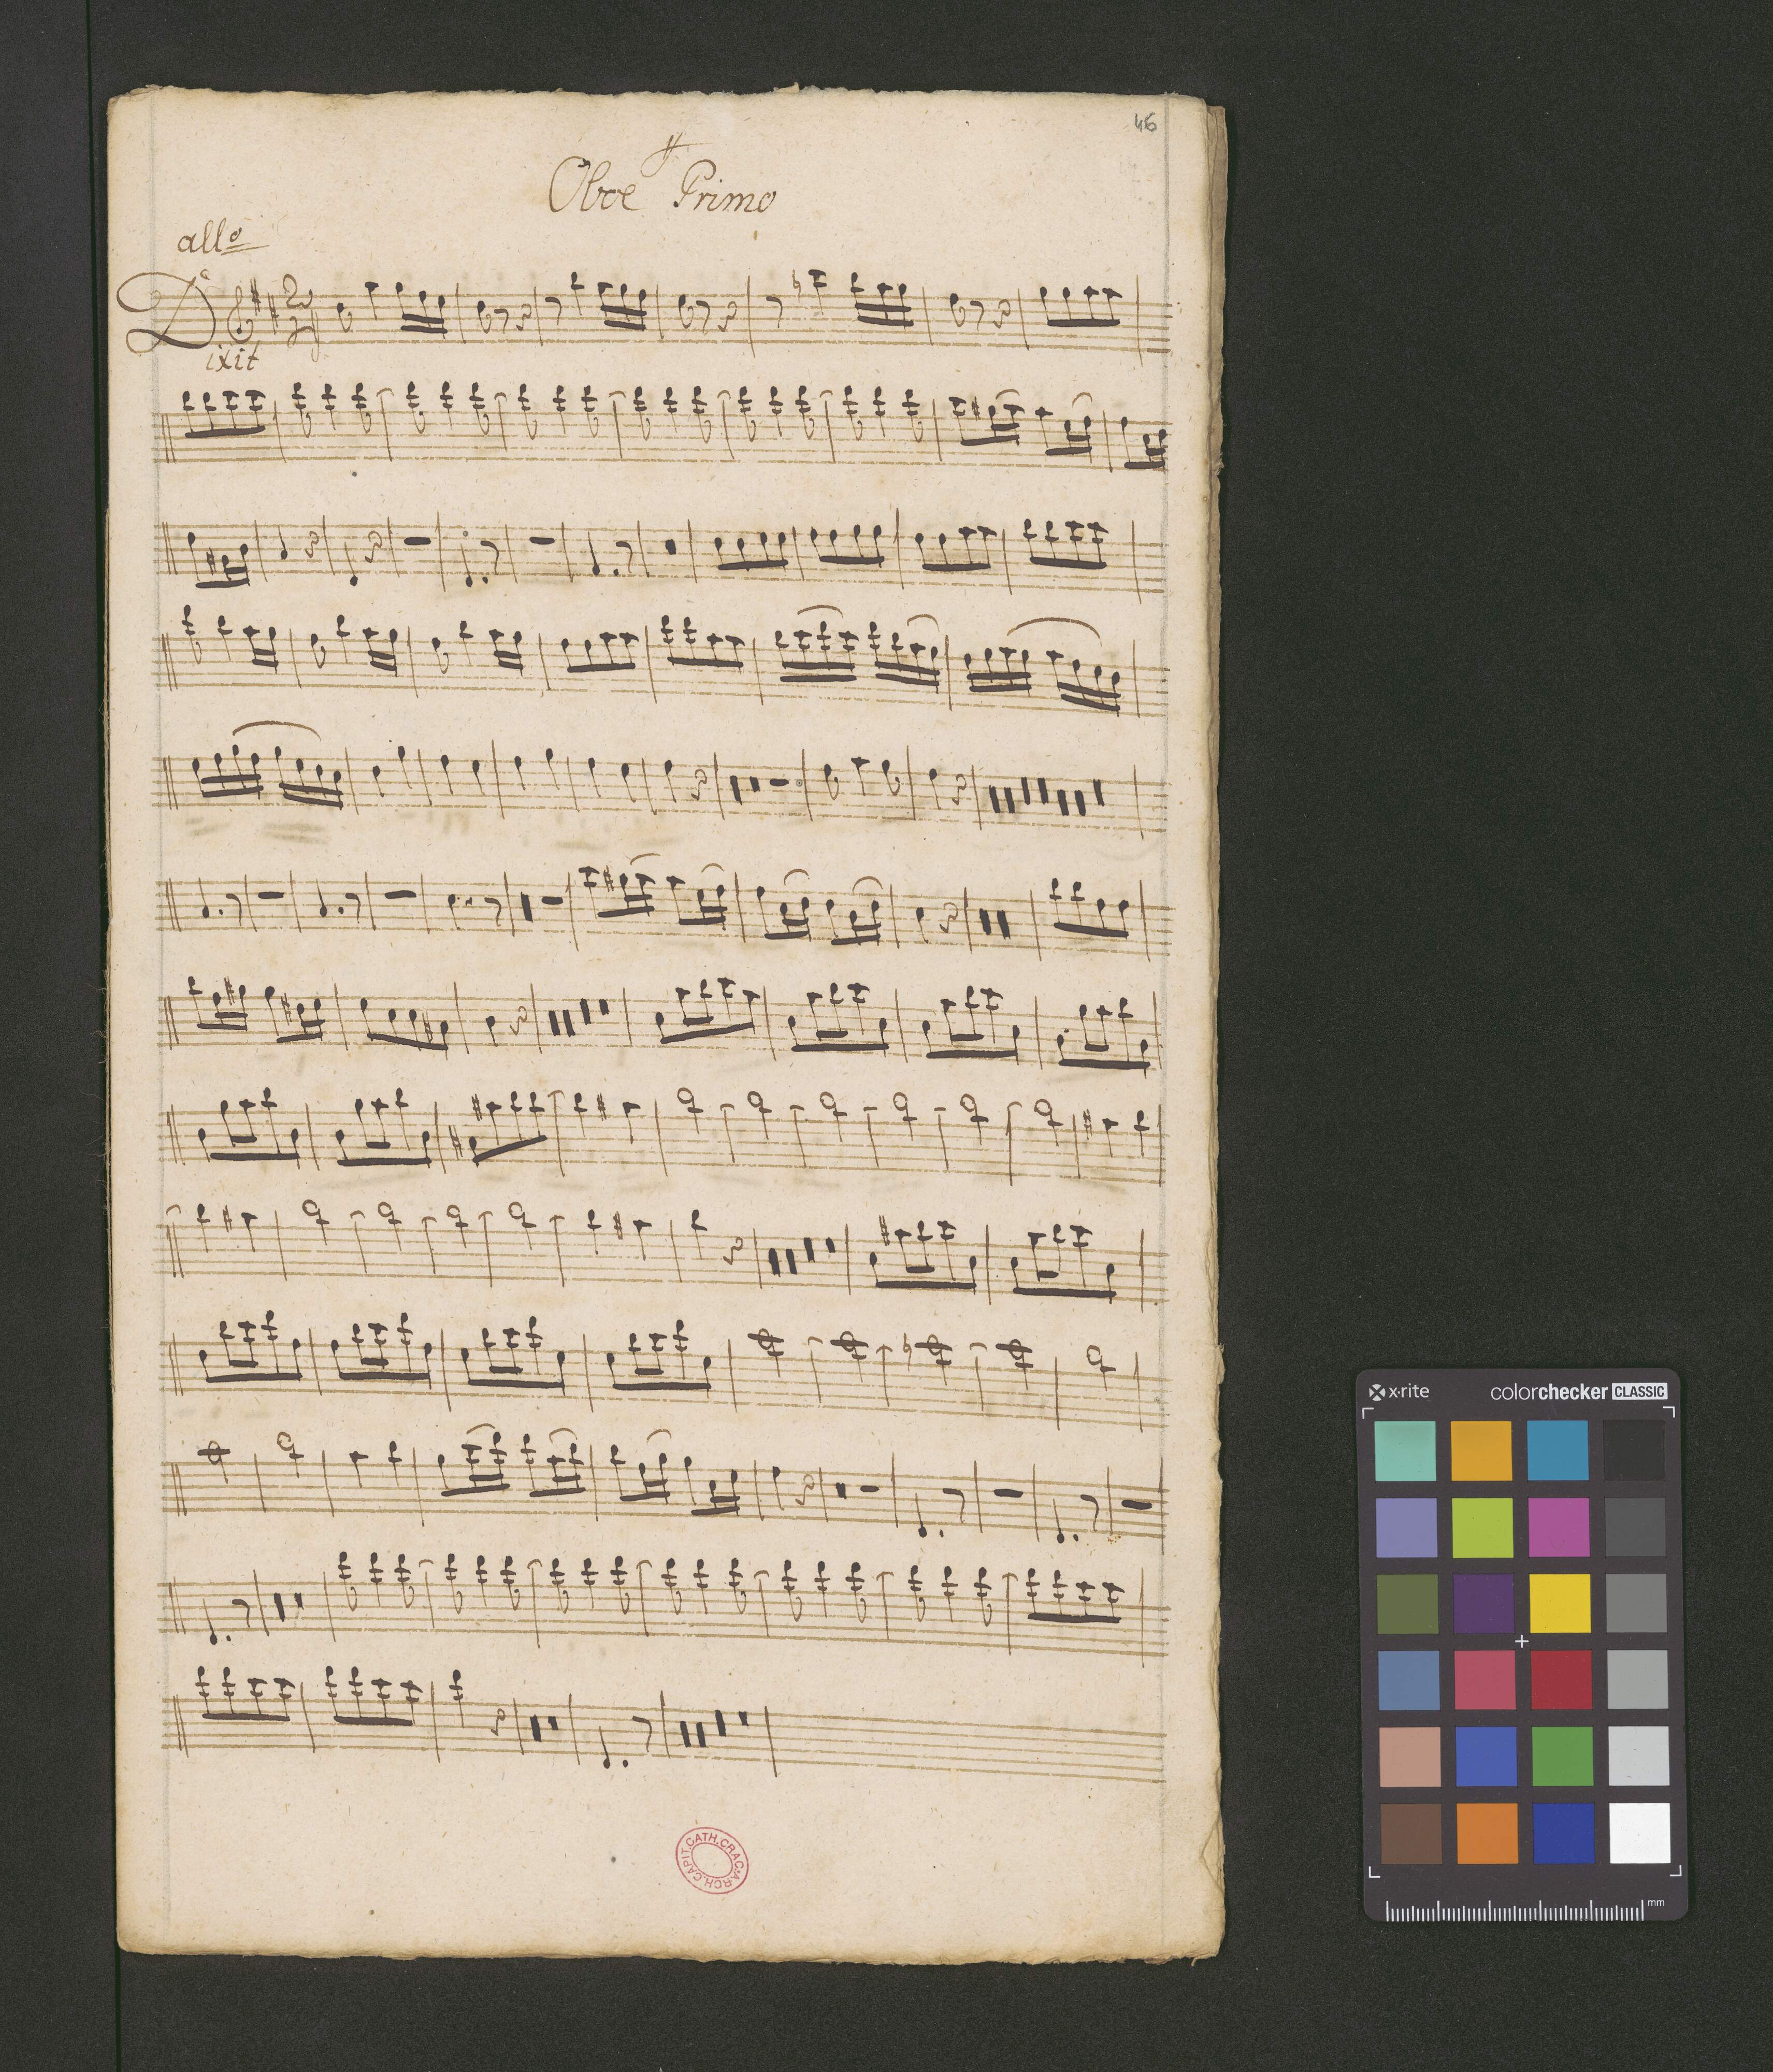 46
Oboe Primo
allo
Dixit
ARCH.CAPIT.CATH.CRAC.
x·rite colorchecker CLASSIC
mm